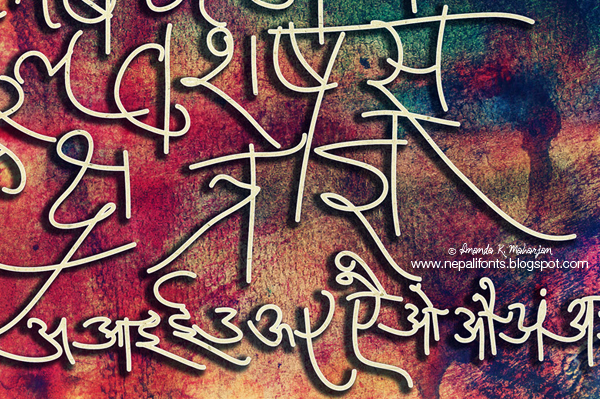 ल व श ष स
क्ष त्र ज्ञ
© Ananda K. Maharjan
www.nepalifonts.blogspot.com
अ आ इ ई उ ऊ ए ऐ ओ औ अं